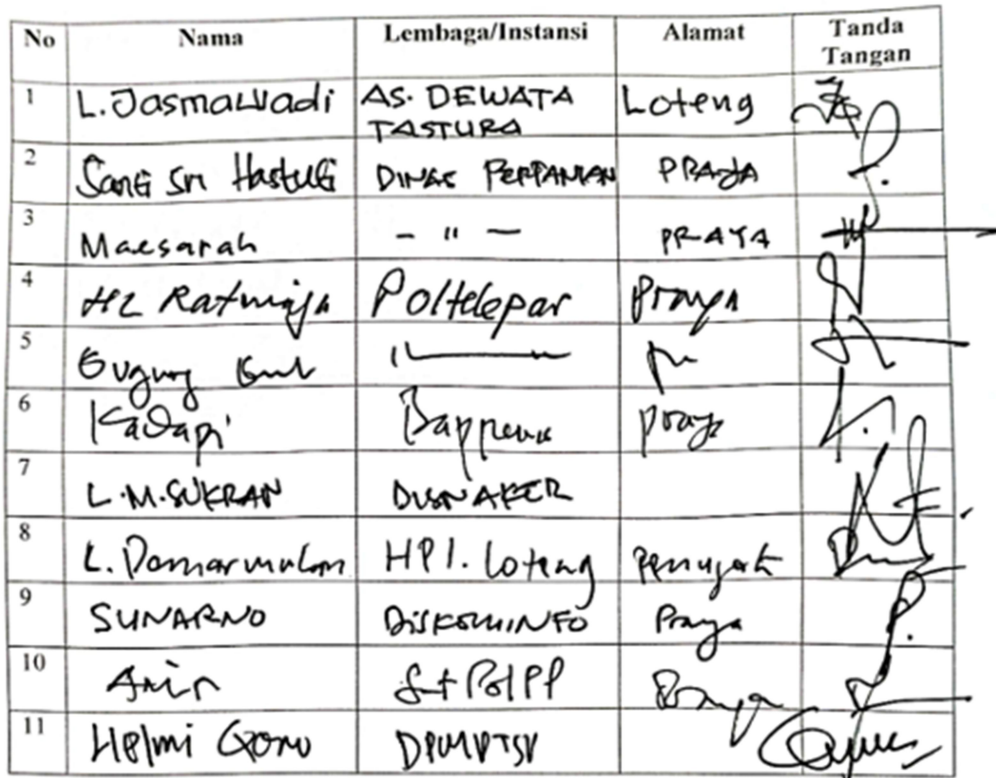 No Nama Lembaga/Instansi Alamat Tanda Tangan
1 L. Jasmawadi AS. DEWATA TASTURA Loteng
2 Sri Hastuti DINAS PERTANIAN PRAYA
3 Maesarah - " - PRAYA
4 Poltekpar Praya
5
6 Kadapi Praya
7 L.M. SUKRAN DISNAKER
8 L. Damarwulan HPI. Loteng Penujak
9 SUNARNO DISKOMINFO Praya
10 Amir Praya
11 Helmi DPMPTSP